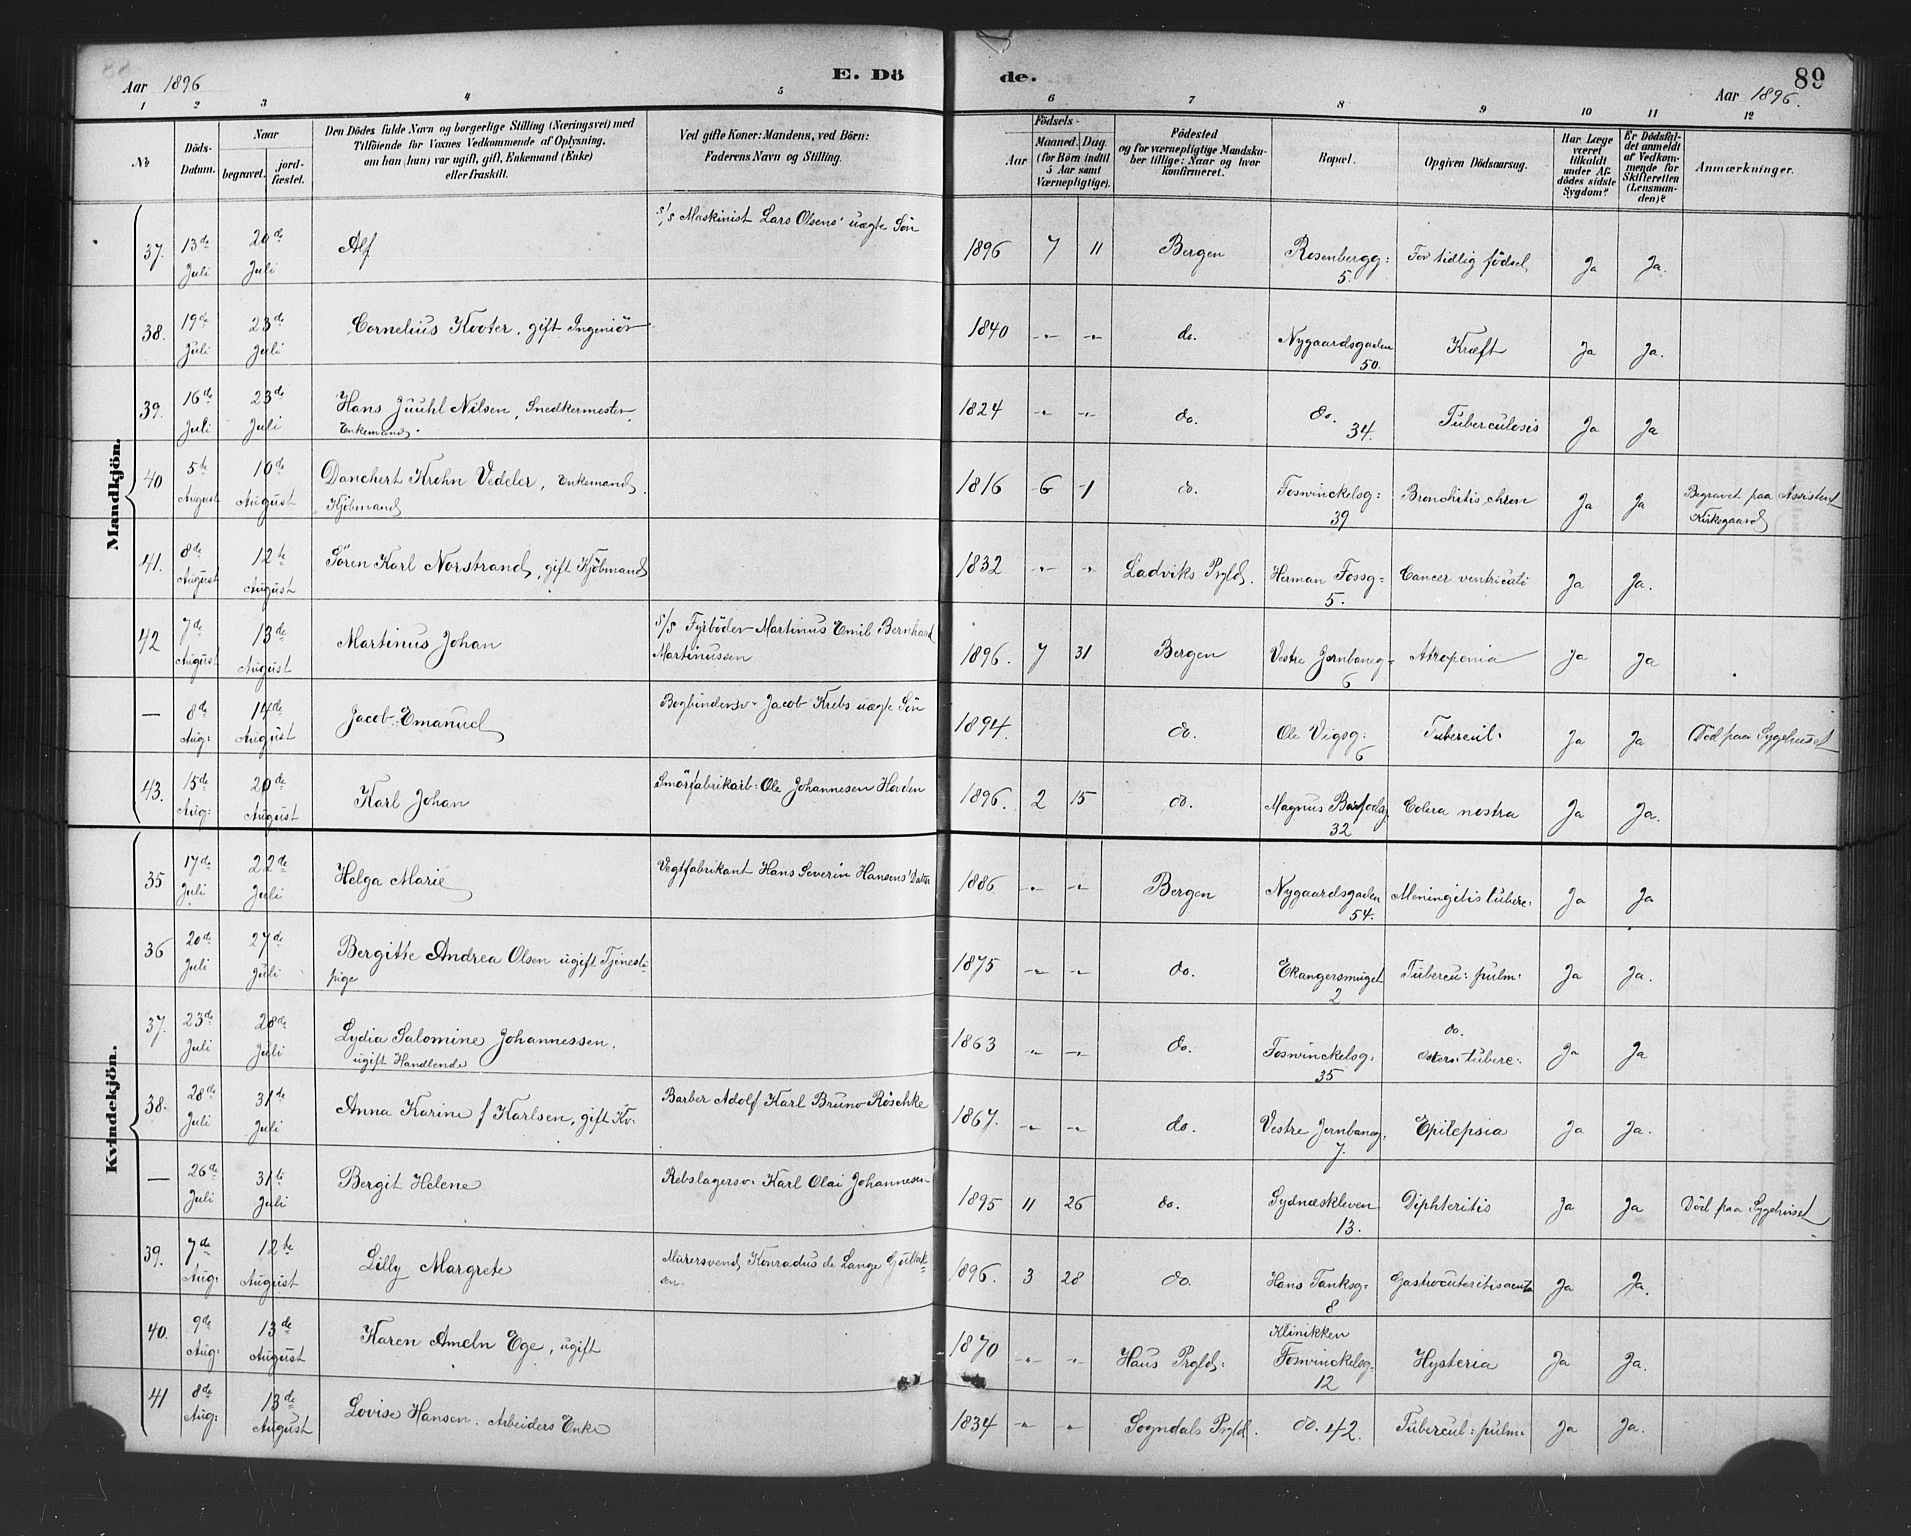 88
Aar 1896
E. Dö
de.
89
Aar 1896.
1 2 3 4 5 6 7 8 9 10 11 12
No
Döds-Datum.
Naar
begravet.
jord-fæstet.
Den Dödes fulde Navn og borgerlige Stilling (Næringsvei) med
Tilföiende for Voxnes Vedkommende af Oplysning,
om han (hun) var ugift, gift, Enkemand (Enke)
eller fraskilt.
Ved gifte Koner: Mandens, ved Börn:
Faderens Navn og Stilling.
Födsels-
Aar
Maaned. Dag.
(for Börn indtil
5 Aar samt
Værnepligtige).
Födested
og for værnepligtige Mandsku-
ber tillige: Naar og hvor
konfirmeret.
Bopæl.
Opgiven Dödsaarsag.
Har Læge
været
tilkaldt
under Af-
dödes sidste
Sygdom?
Er Dödsfal-
det anmeldt
af Vedkom-
mende for
Skifteretten
(Lensman-
den)?
Anmærkninger.
Mandkjön.
37. 13de Juli 20de Juli Alf s/s Maskinist Lars Olsens' uægte Sön 1896 7 11 Bergen Rosenbergg: 5. For tidlig födsel Ja Ja.
38. 19de Juli 23de Juli Cornelius Kooter, gift Ingeniör 1840 -"- -"- do. Nygaardsgaden 50. Kræft Ja Ja.
39. 16de Juli 23de Juli Hans Juuhl Nilsen, Snedkermester, Enkemand. 1824 -"- -"- do. do. 34. Tuberculosis Ja Ja
40 5te August 10de August Danchert Krohn Vedeler, Enkemand. Kjöbmand 1816 6 1 do. Fosvinckelsg: 39 Bronchitis chron Ja Ja Begravet paa Assistent Kirkegaard
41. 8de August 12te August Sören Karl Norstrand, gift Kjöbmand 1832 -"- -"- Ladviks Prgld. Herman Fossg- 5. Cancer ventricati Ja Ja.
42 7de August 13de August Martinus Johan s/s Fyrböder Martinus Emil Bernhard Martinussen 1896. 7 31 Bergen Vestre Jernbaneg- 6 Atropenia Ja Ja
— 8de Aug: 14de August Jacob Emanuel Bogbindersv- Jacob Krebs uægte Sön 1894. do. Ole Vigsg: 6 Tubercul: Ja Ja Död paa Sygehuset
43. 15de Aug: 20de August Karl Johan Smörfabrikarb: Ole Johannesen Horden 1896. 2 15 do. Magnus Barfodsg 32 Colera nostra Ja Ja.
Kvindekjön.
35 17de Juli 22de Juli Helga Marie Vegtfabrikant Hans Severin Hansens' Datter 1886 -"- -"- Bergen Nygaardsgaden 54. Meningitis tuberc: Ja Ja
36 20de Juli 27de Juli Bergitte Andrea Olsen ugift Tjeneste- pige 1875 -"- -"- do. Ekangersmuget 2 Tubercu: pulm: Ja Ja.
37. 23de Juli 28de Juli Lydia Salomine Johannessen. ugift Handlende 1863 -"- -"- do. Fosvinckelsg: 35 do. tuberc: Ja Ja
38. 28de Juli 31te Juli Anna Karine f Karlsen, gift Kv: Barber Adolf Karl Bruno Röschke 1867. -"- -"- do. Vestre Jernbaneg: 7. Epilepsia Ja Ja.
— 26de Juli 31te Juli Bergit Helene Rebslagersv: Karl Olai Johannesen 1895 11 26 do. Sydnæskleven 13. Diphteritis Ja Ja Död paa Sygehuset
39. 7de Aug: 12te August Lilly Margrete Murersvend Konradus de Lange Gulbrk- sen 1896. 3 28 do. Hans Tanksg- 8 Gastrocuteritis acuta Ja Ja.
40. 9de Aug: 13de August Karen Ameln Ege, ugift 1870 -"- -"- Haus Prgld: Klinikken Fosvinckelsg- 12 Hysteria Ja Ja.
41 8de Aug: 13de August Lovise Hansen. Arbeiders Enke 1834 -"- " Sogndals Prgld do. 42. Tubercul: pulm: Ja Ja.